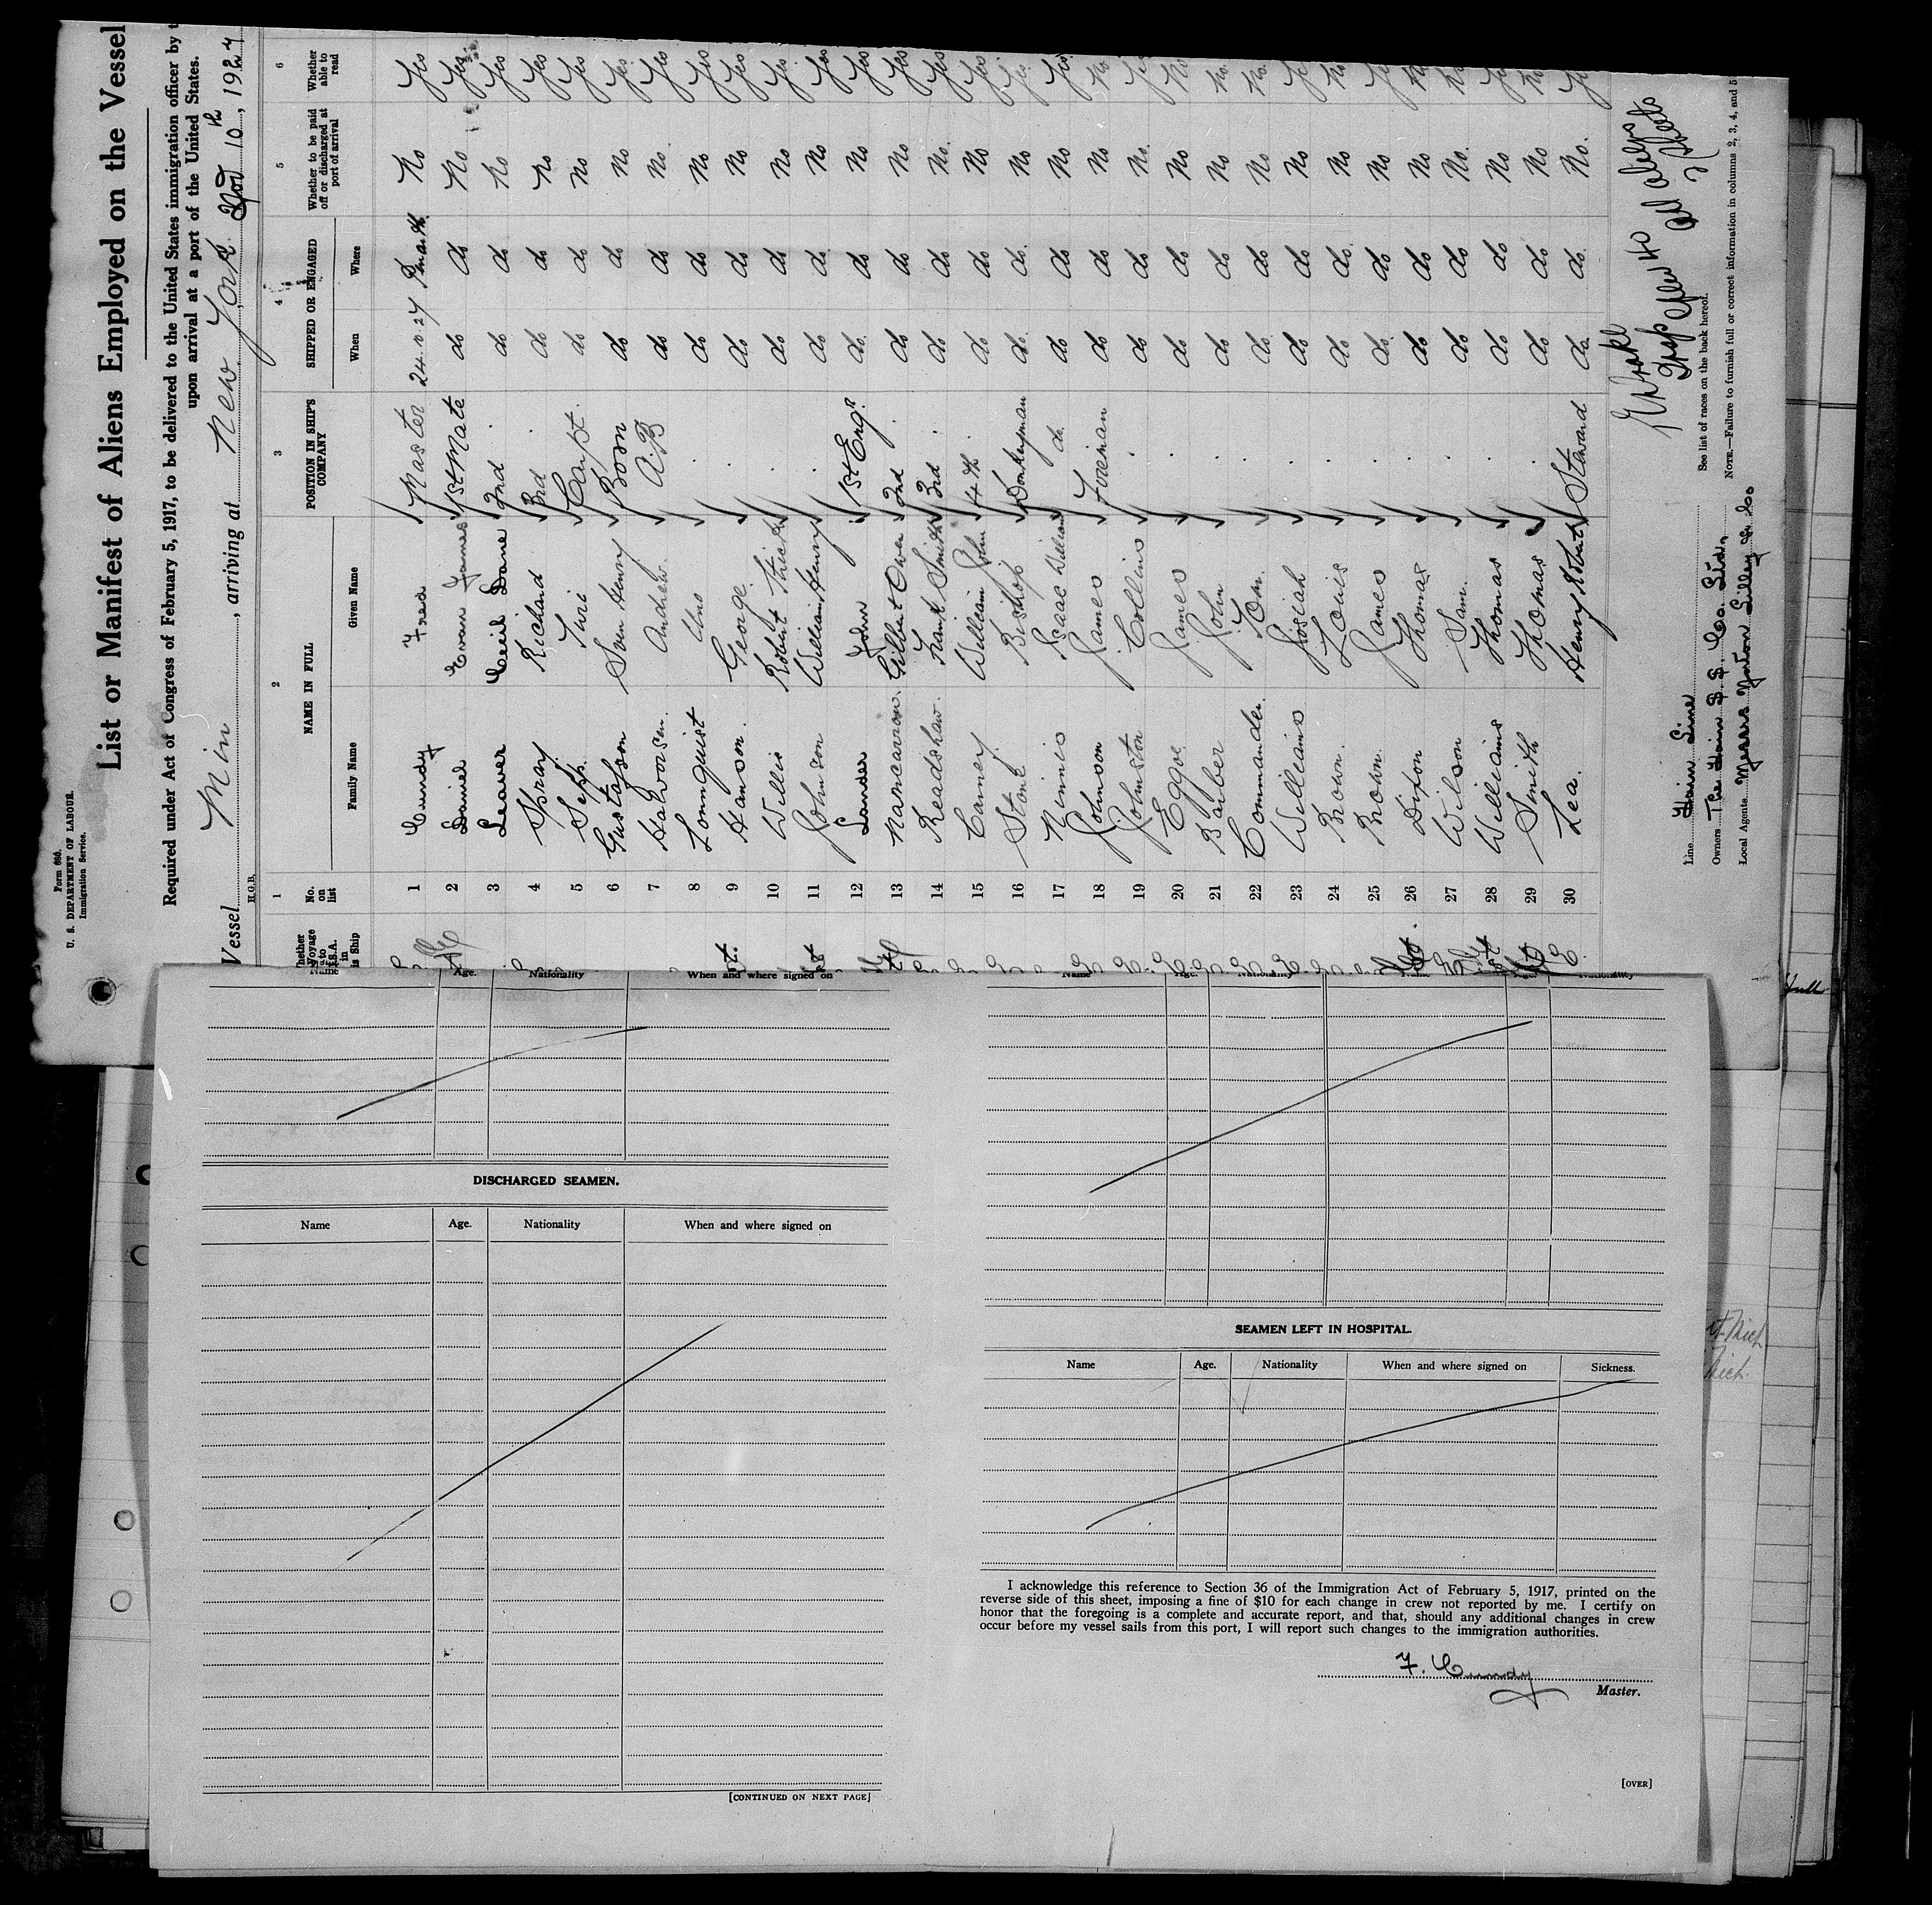 Form 680.
U. S. DEPARTMENT OF LABOUR.
Immigration Service.
List or Manifest of Aliens Employed on the Vessel
Required under Act of Congress of February 5, 1917, to be delivered to the United States immigration officer by
upon arrival at a port of the United States.
Vessel Min , arriving at New York 10th, 1927
H.G.B.
1 2 3 4 5 6
No. on list NAME IN FULL POSITION IN SHIP'S COMPANY SHIPPED OR ENGAGED Whether to be paid off or discharged at port of arrival Whether able to read
Family Name Given Name When Where
1 Cundy Fred Master No Yes
2 Daniel Evan James 1st Mate do do No Yes
3 Leaver Cecil Dane 2nd do do No Yes
4 Spray Richard 3rd do do No Yes
5 Carpt. do do No Yes
6 Gustafson Sven Henry Bosn do do No Yes
7 Halvorsen Andrew AB do do No Yes
8 Lonnquist Uno . do do No Yes
9 Hanson George . do do No Yes
10 Willis Robert . do do No Yes
11 Johnson William Henry . do do No Yes
12 Lander John 1st Engr. do do No Yes
13 Nancarrow Gilbert Owen 2nd do do No Yes
14 Readshaw Frank Smith 3rd do do No Yes
15 Carney William John 4th do do No Yes
16 Stone Bishop Donkeyman do do No Yes
17 Nimmo Isaac William do. do do No Yes
18 Johnson James Foreman do do No No
19 Johnston Collins . do do No Yes
20 Eggoe James . do do No No
21 Barber John . do do No No
22 Commander Tom . do do No No
23 Williams Josiah . do do No Yes
24 Brown Louis . do do No No
25 Brown James . do do No Yes
26 Dixon Thomas . do do No No
27 Wilson Sam . do do No No
28 Williams Thomas . do do No Yes
29 Smith Thomas . do do No No
30 Lea Henry Robert Steward do do No Yes
Line Hain Line
Owners The Hain S.S. Co. Ltd.
Local Agents Messrs Norton Lilley & Co
See list of races on the back hereof.
NOTE.—Failure to furnish full or correct information in columns 2, 3, 4, and 5
Name Age. Nationality When and where signed on
DISCHARGED SEAMEN.
Name Age. Nationality When and where signed on
[CONTINUED ON NEXT PAGE]
Name Age. Nationality Name Age. Nationality
SEAMEN LEFT IN HOSPITAL.
Name Age. Nationality When and where signed on Sickness.
I acknowledge this reference to Section 36 of the Immigration Act of February 5, 1917, printed on the
reverse side of this sheet, imposing a fine of $10 for each change in crew not reported by me. I certify on
honor that the foregoing is a complete and accurate report, and that, should any additional changes in crew
occur before my vessel sails from this port, I will report such changes to the immigration authorities.
F. Cundy
Master.
[OVER]